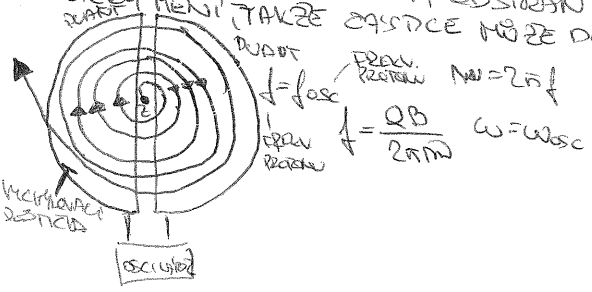 MĚNÍ, TAKŽE ČÁSTICE MŮŽE
DUANT
DUANT
f = fosc
FREKV. PROTONU
W = 2πf
f = QB / 2πm
ω = ωosc
VYCHYLOVACÍ
DESTIČKA
Z
OSCILÁTOR